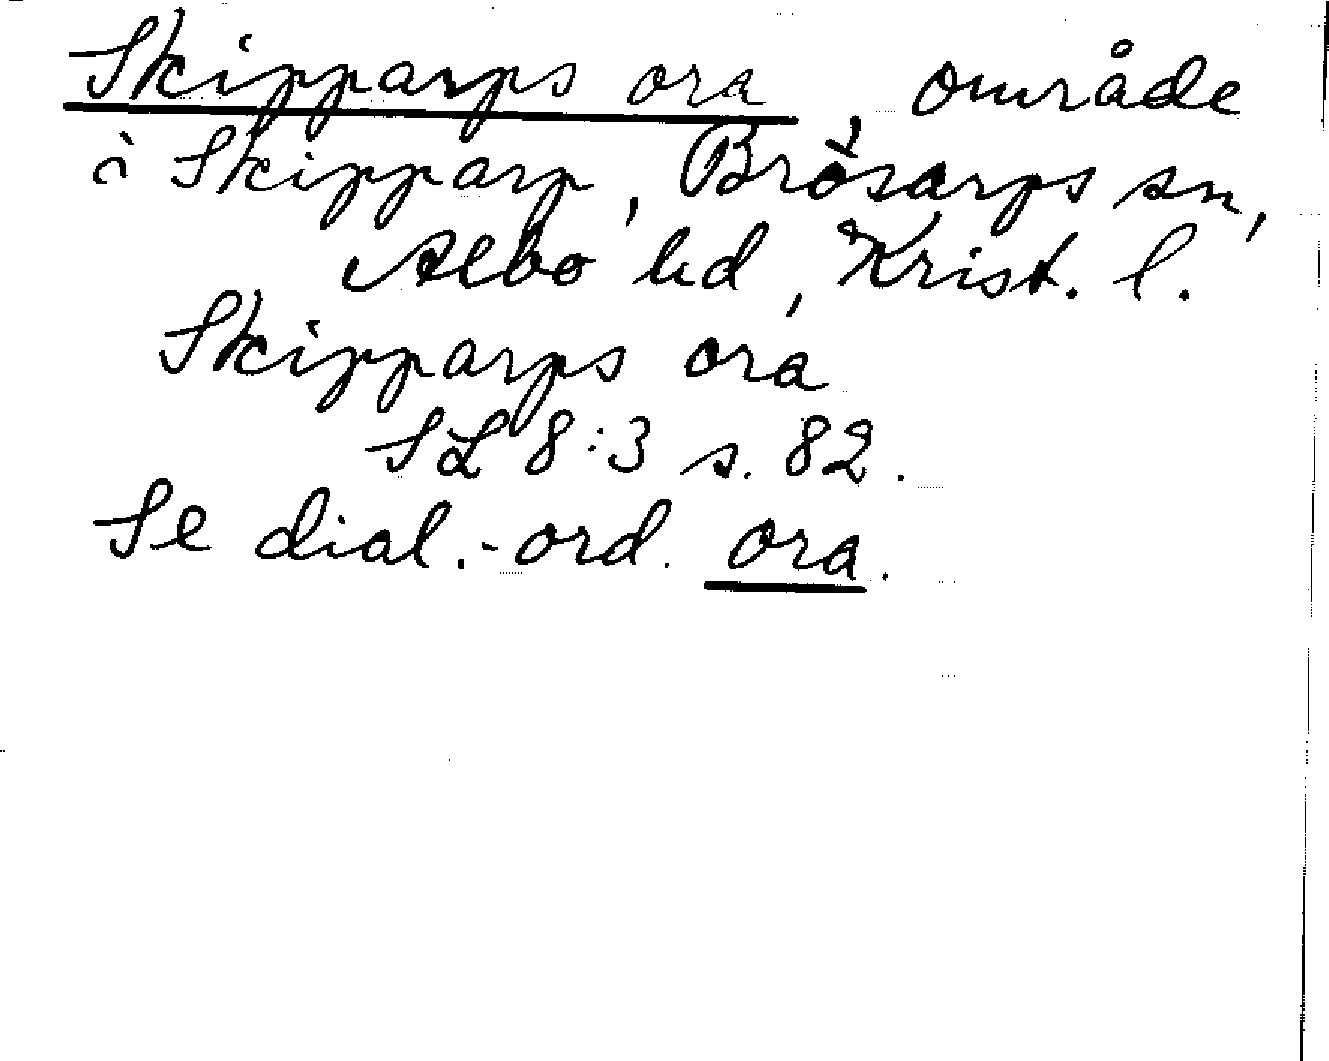 Skipparps ora, område
i Skipparp, Brösarps sn,
Albo hd, Krist. l.
Skipparps ora
SL 8:3 s. 82.
Se dial.-ord. ora.